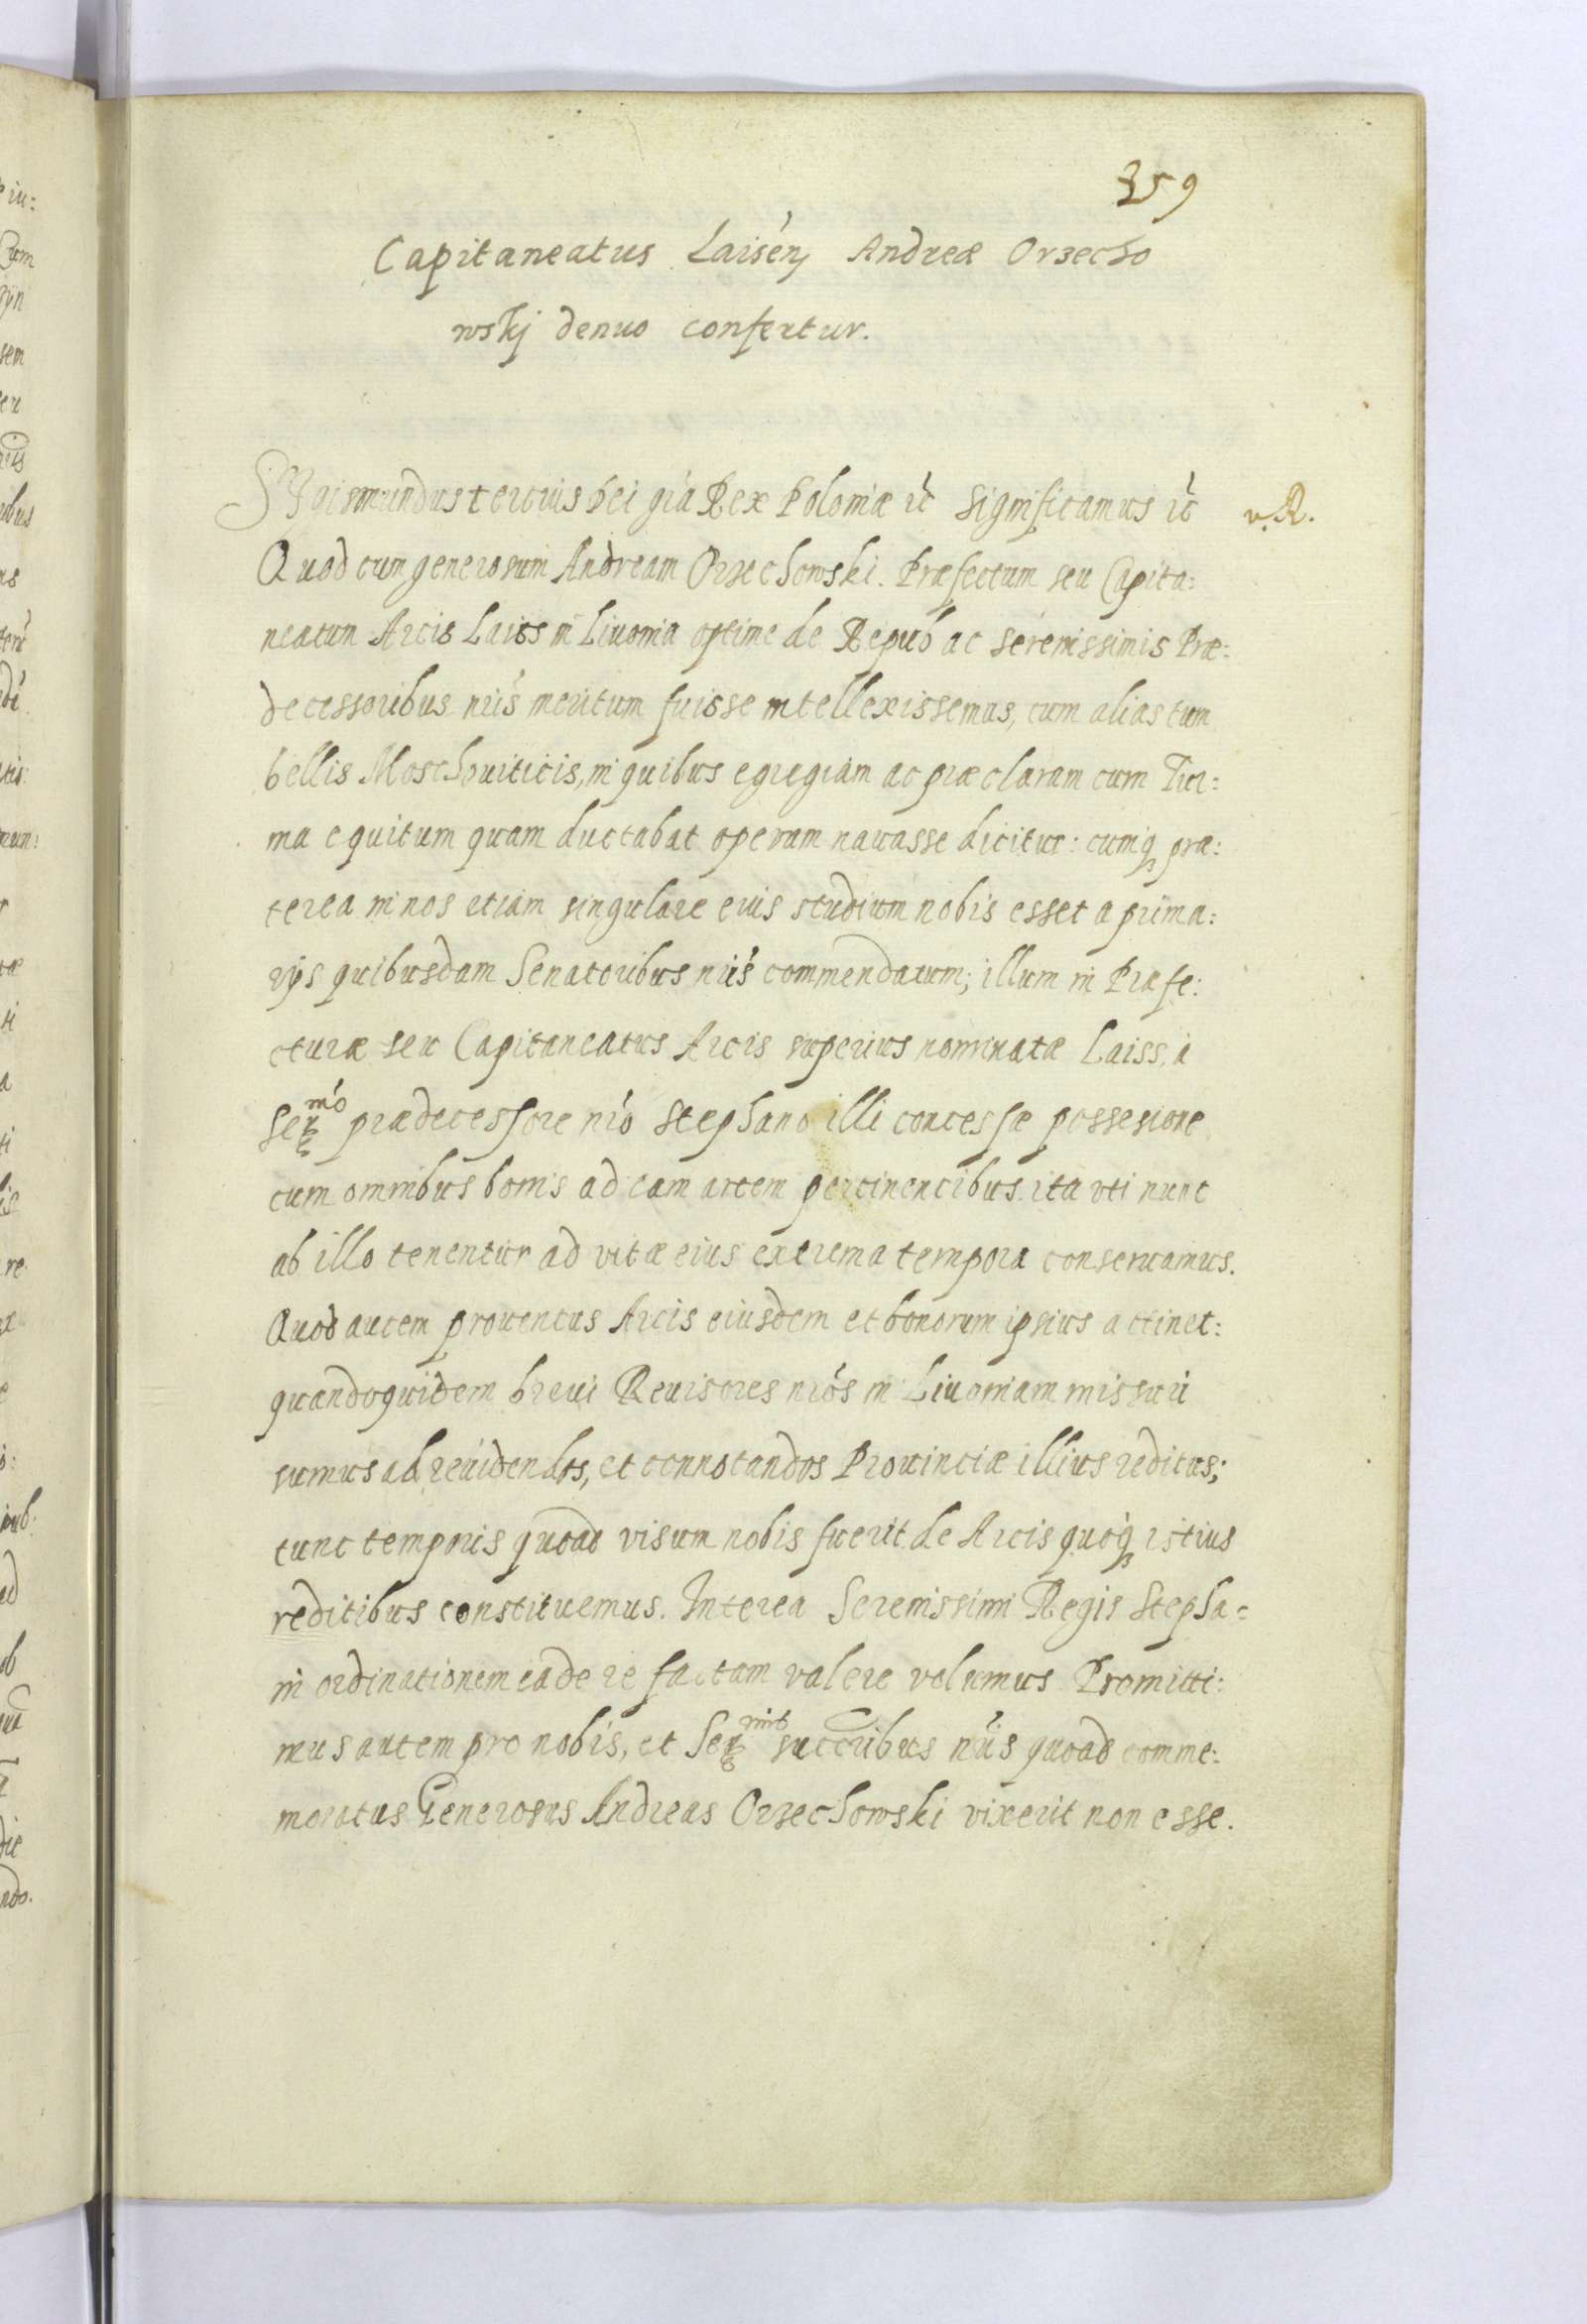 359
Capitaneatus Laisen̄ Andreæ Orzecho
wskj denuo confertur.
Sygismundus tertius Dei gr̃a Rex Poloniæ etc̃ significamus etc̃ v. R.
Quod cum generosum Andream Orzechowski. Præfectum seu Capita:
neatum Arcis Laiss in Liuonia optime de Repub́ ac serenissimis Præ:
decessoribus nr̃is meritum fuisse intellexissemus, cum alias tum
bellis Moschouiticis, in quibus egregiam ac præclaram cum Tur:
ma equitum quam ductabat operam nauasse dicitur: cumq₃ præ:
terea in nos etiam singulare eius studium nobis esset a prima:
rijs quibusdam Senatoribus nr̃is commendatum; illum in Præfe:
cturæ seu Capitaneatus Arcis superius nominatæ Laiss, a
Ser^mo prædecessore nr̃o Stephano illi concessæ possesione
cum omnibus bonis ad eam arcem pertinentibus. ita vti nunc
ab illo tenentur ad vitæ eius extrema tempora conseruamus.
Quod autem prouentus Arcis eiusdem et bonorum ipsius attinet:
quandoquidem breui Reuisores nr̃os in Liuoniam missuri
sumus ad reuidendos, et connotandos Prouinciæ illius reditus;
tunc temporis quoad visum nobis fuerit de Arcis quoq₃ istius
reditibus constituemus. Interea Serenissimi Regis Stepha=
ni ordinationem ea de re factam valere volumus Promitti:
mus autem pro nobis, et Ser^mis succ̃ribus nr̃is quoad comme:
moratus Generosus Andreas Orzechowski vixerit non esse.